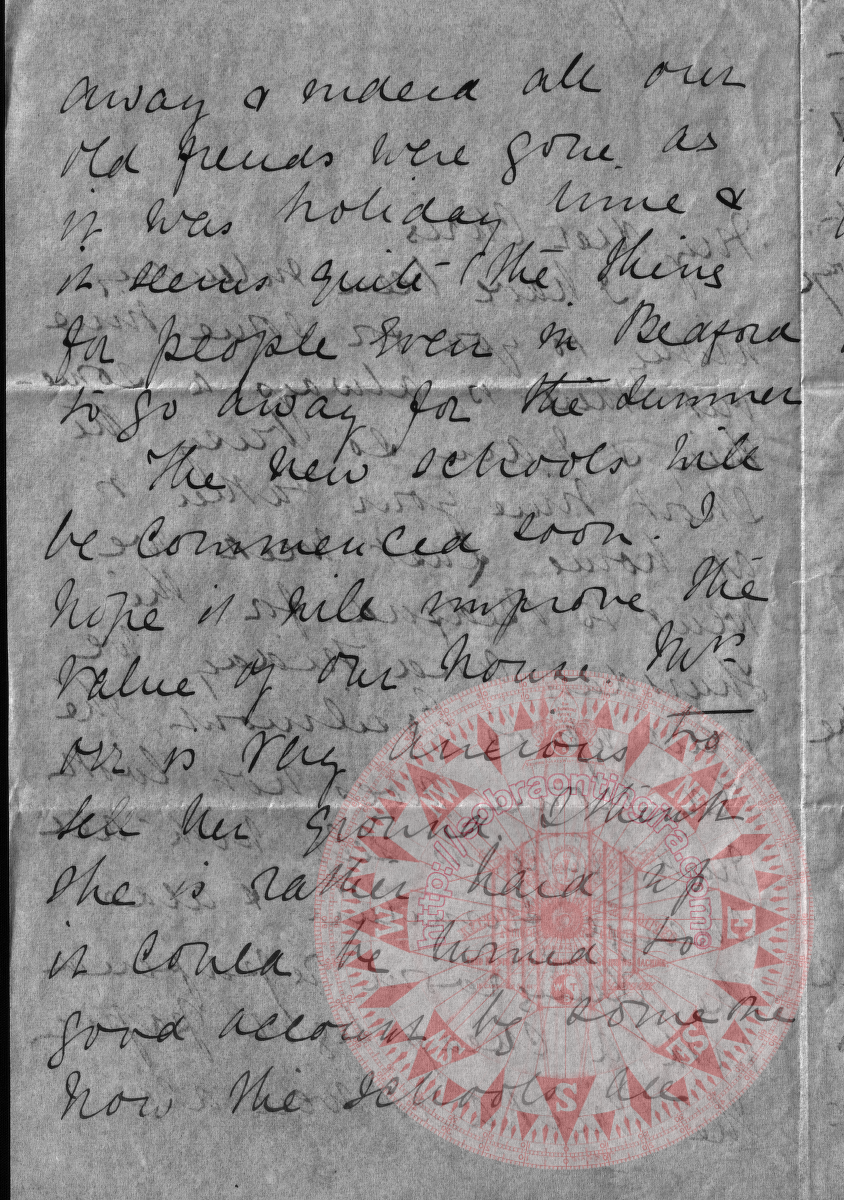 away & indeed all our
old friends were gone. as
it was holiday time &
it seems quite the thing
for people even in Bedford
to go away for the summer
The new schools will
be commenced soon. I
hope it will improve the
value of our house. Mrs
Orr is very anxious to
sell her ground. I think
she is rather hard up
it could be turned to
good account by someone
now the schools are
http://cobraontihgra.com